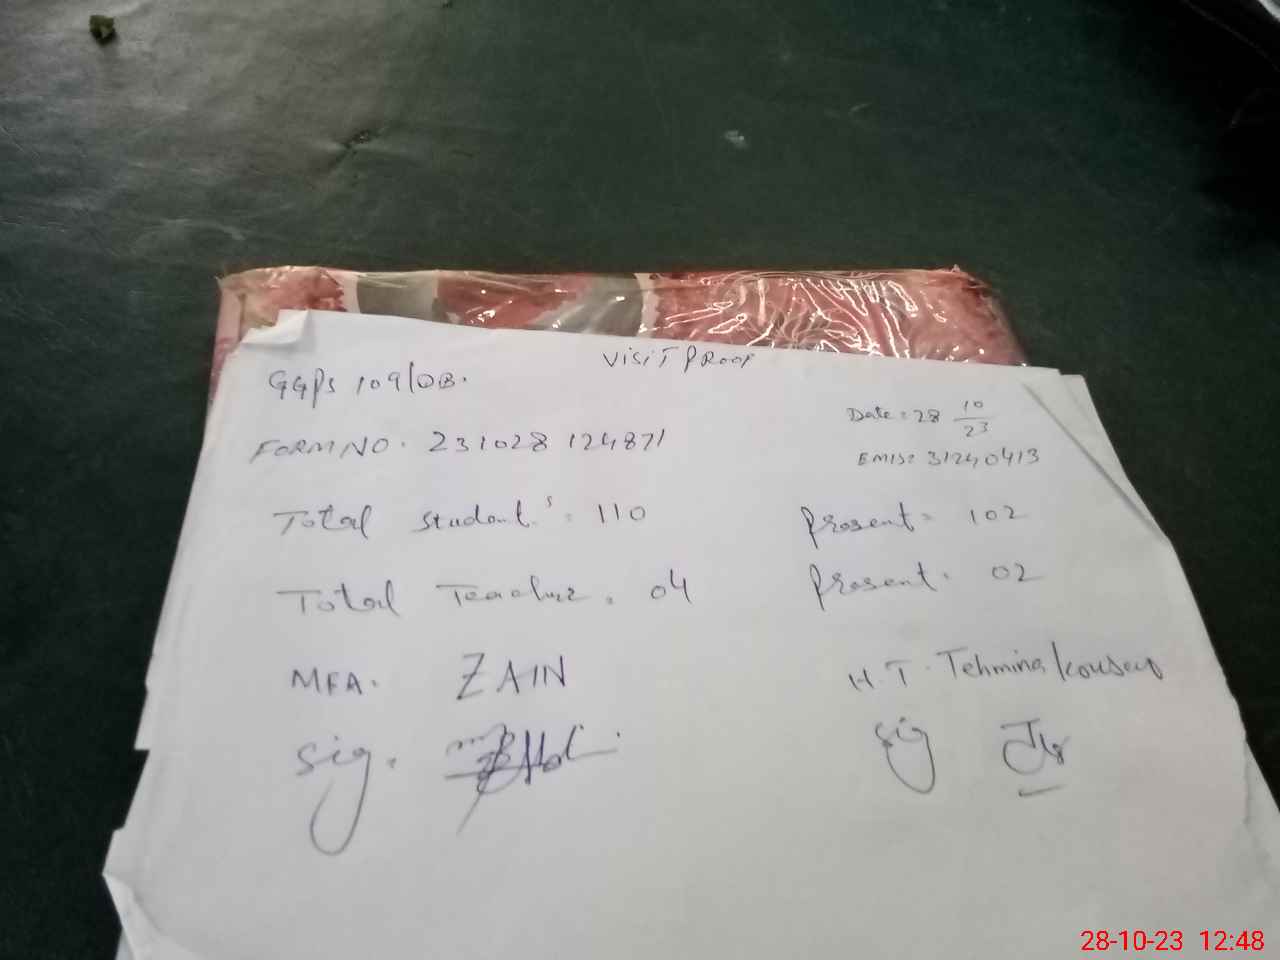 VISIT PROOF
GGPS 109/DB.
Date: 28 10/23
FORM NO. 231028124871
EMIS: 31240413
Total Student's: 110
Present: 102
Total Teacher: 04
Present: 02
MEA. ZAIN
H.T. Tehmina Kousar
Sig.
Sig
28-10-23 12:48